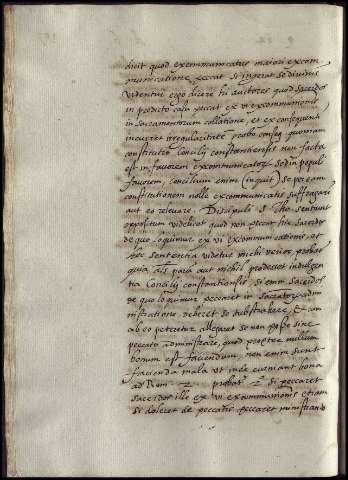 dicit quod excommunicatus maiori excom
municatione peccat si ingerat se divinis
videntur ergo dicere hi auctores quod sacerdos
in predicto casu peccat ex vi excommunionis
in sacramentorum collatione, et ex consequenti
incurret irregularitatē probo conseq quoniam
constitutio Concilij constantiensis non facta
est in favorem excommunicatorū sed in populi
favorem, Concilium enim (inquit) se per eam
constitutionem nolle excommunicatis suffragari
aut eo relevare. Discipuli S Tho sentiunt
oppositum videlicet quod non peccat hic sacerdos
de quo loquimur ex vi excommunicationis, et
hec sententia videtur michi verior probat
quia als parū aut nichil prodesset indulgen
tia Concilij constantiensis, si enim sacerdos
de quo loquimur peccaret in sacratorū admi
nistratione, deberet se substrahere, et cum
ab eo petcretur allegaret se non posse sine
peccato administrare, quod propter nullum
bonum est faciendum non enim sunt
facienda mala ut inde eveniant bona
ad Rom probat 2 si peccaret
sacerdos ille ex vi excommunionis etiam
si doleret de peccatis peccaret ministrando